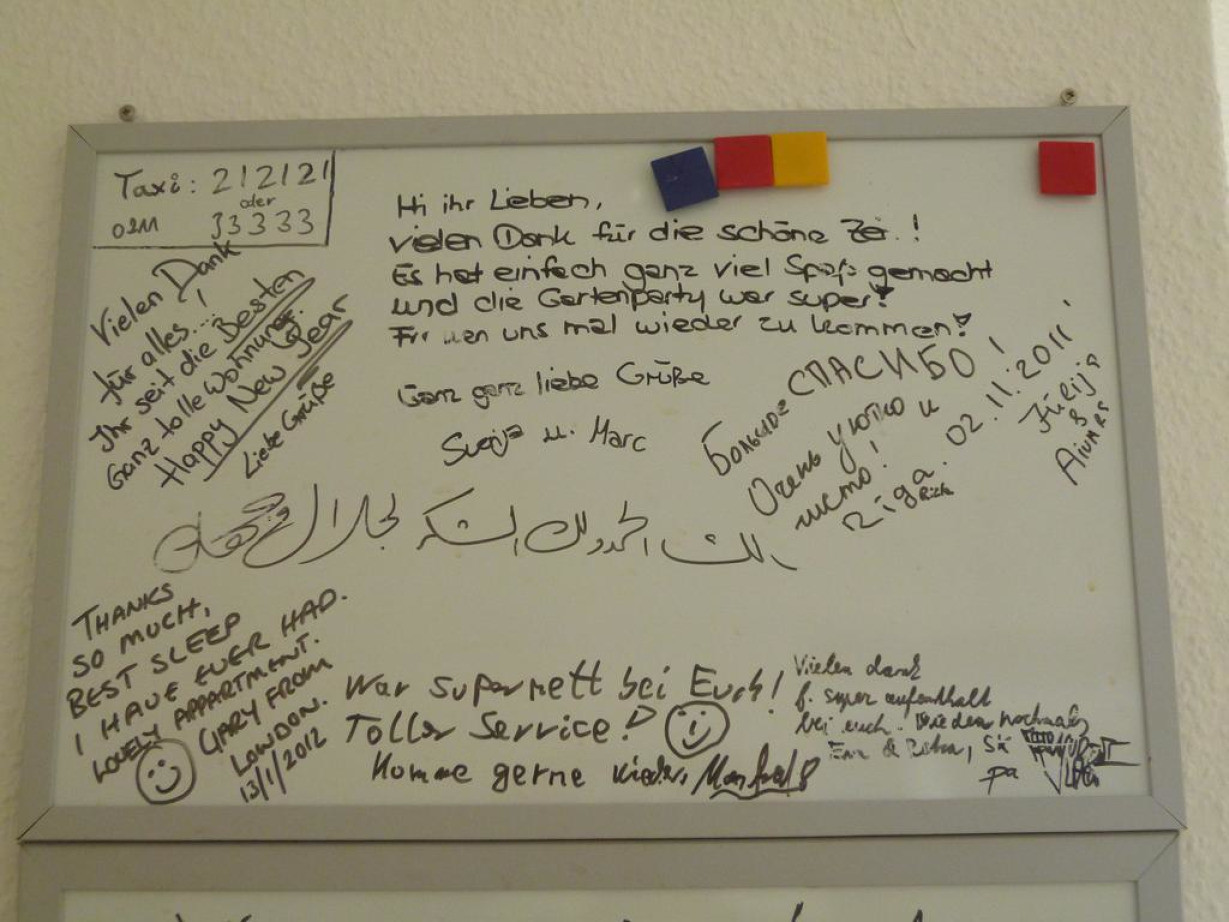 Taxi: 212121
oder
0211 33333
Vielen Dank
für alles...!
Ihr seit die Besten
Ganz tolle Wohnung.
Happy New Year
Liebe Grüße
Hi ihr Lieben,
vielen Dank für die schöne !
Es hat einfach ganz viel Spaß gemacht
und die Gartenparty war super!
uns mal wieder zu kommen!
Ganz ganz liebe Grüße
u. Marc
Большое СПАСИБО!
Очень уютно и
чисто!
Riga. 02.11.2011
Jūlija
&
لك الحمد ولك الشكر لجلال
THANKS
SO MUCH,
BEST SLEEP
I HAVE EVER HAD.
LOVELY APPARTMENT.
GARY FROM
LONDON.
13/1/2012
War supernett bei Euch!
Toller Service!
Komme gerne wieder, Manfred
Vielen dank
f. super aufenthalt
bei euch.